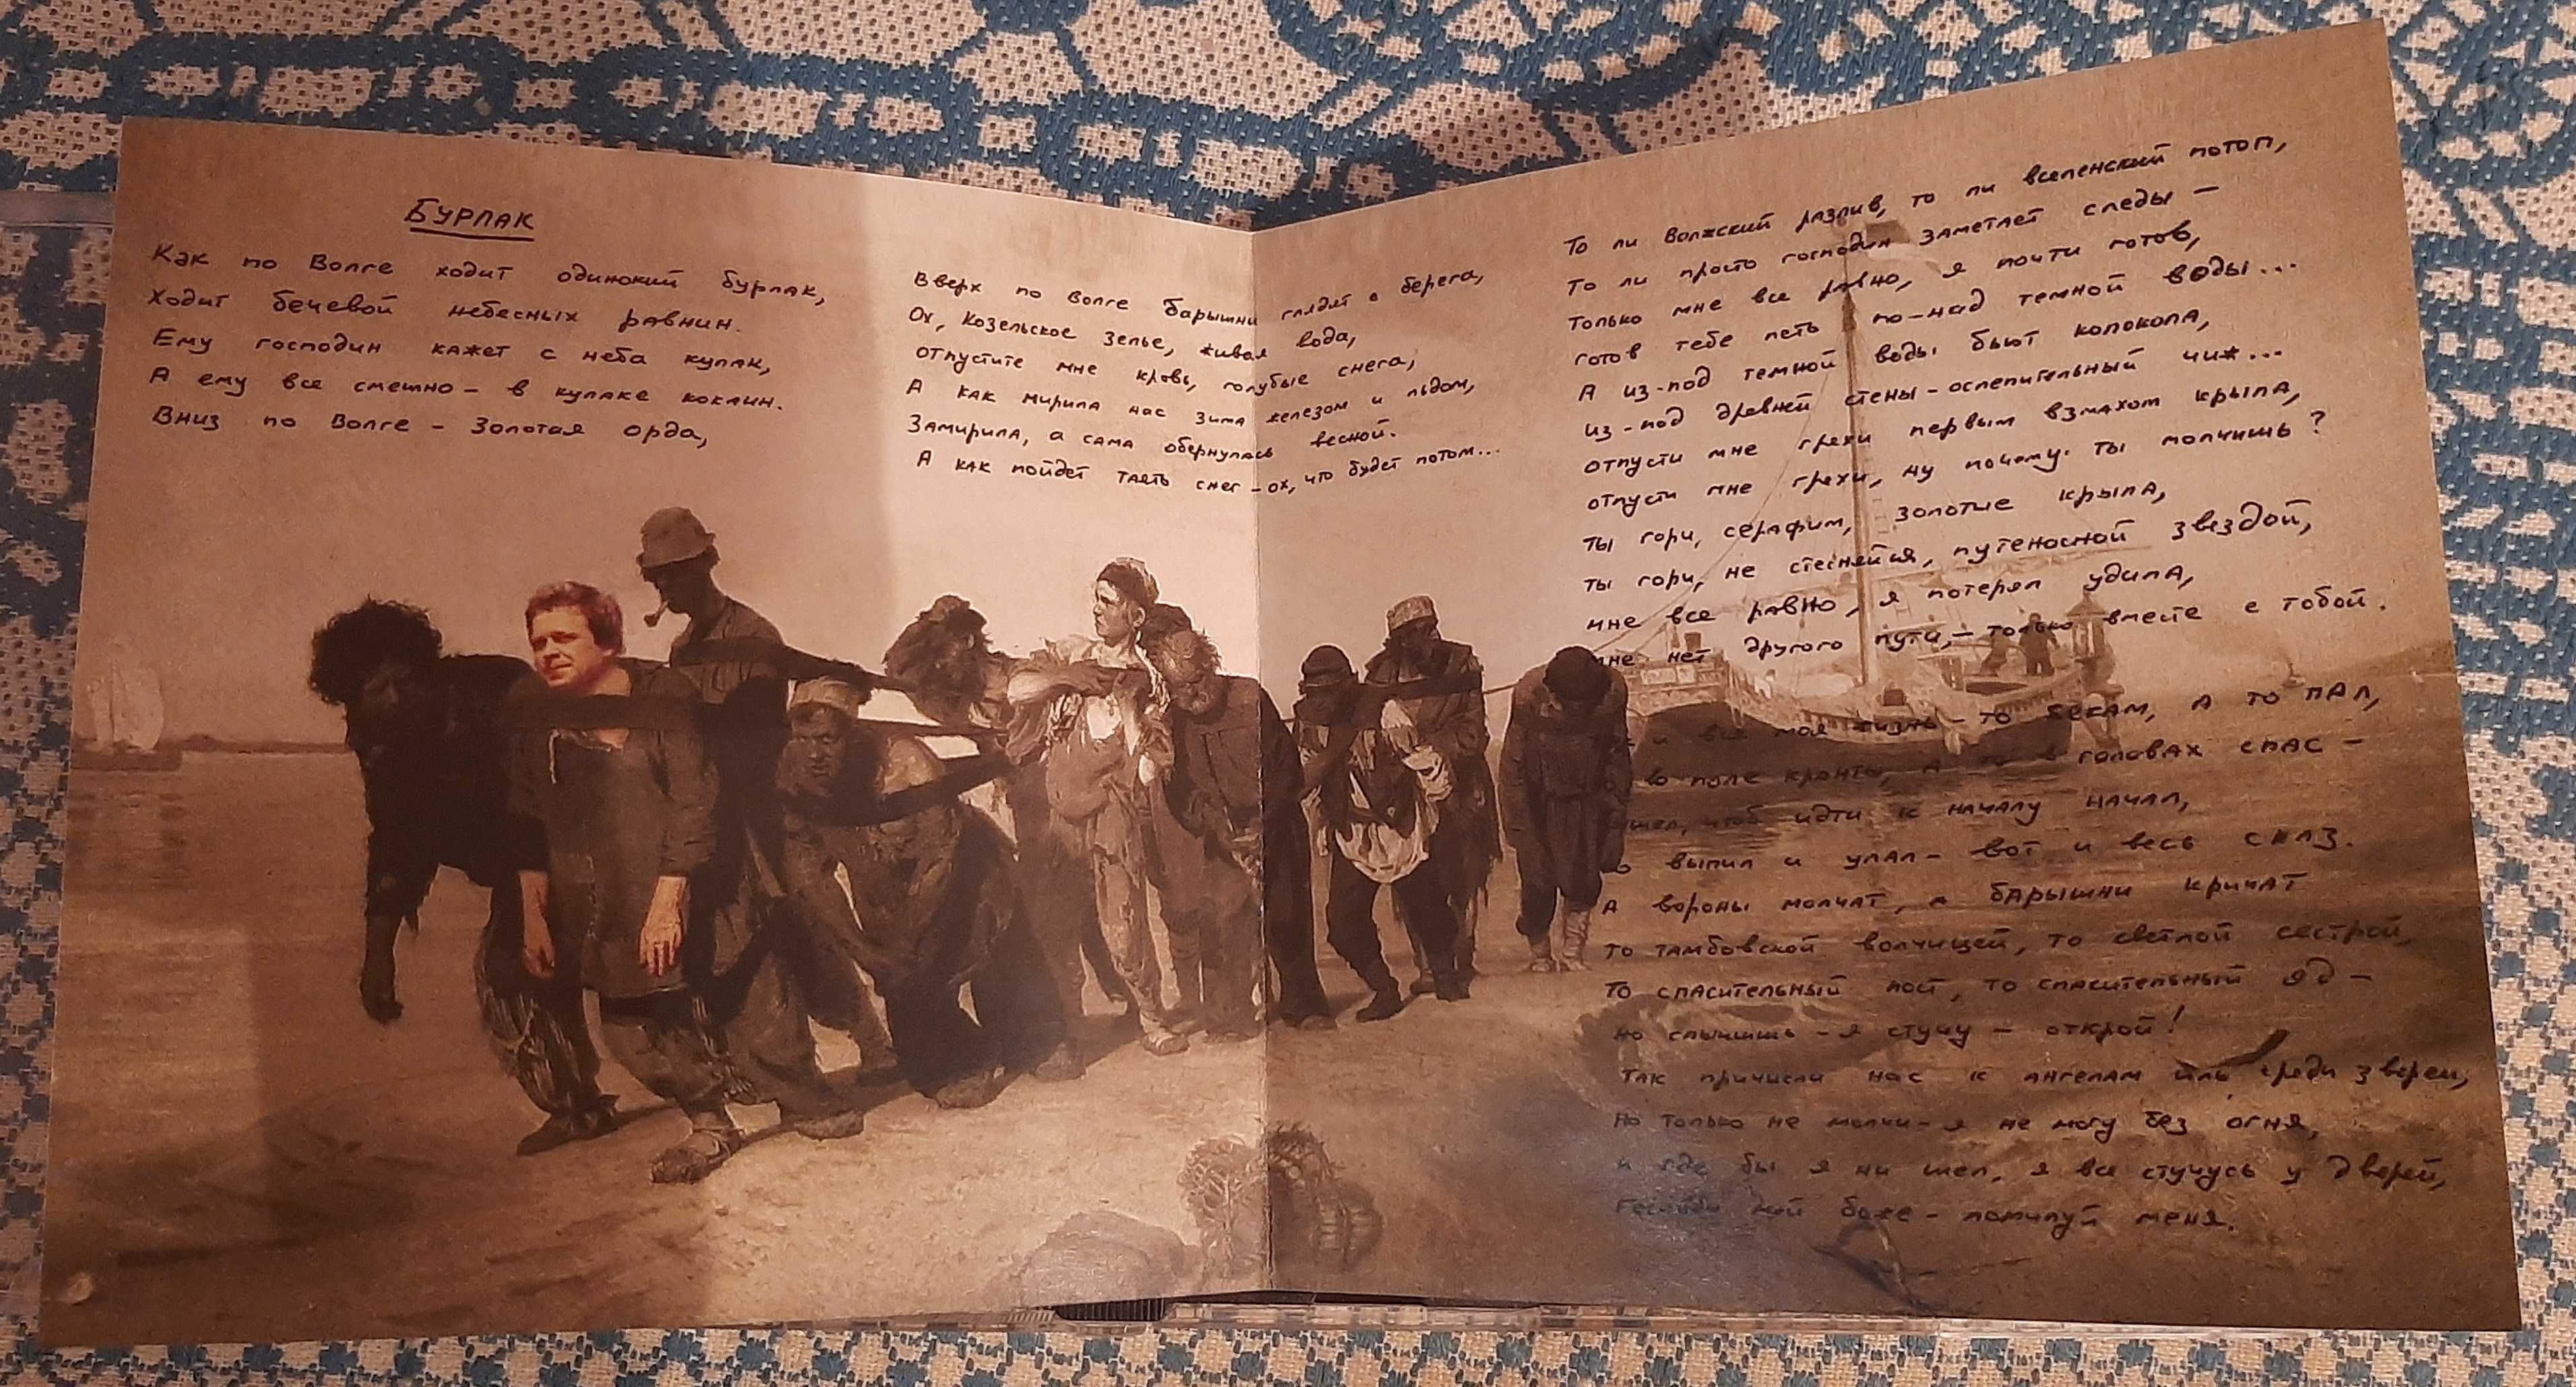 БУРЛАК
Как по Волге ходит одинокий бурлак,
Ходит бечевой небесных равнин.
Ему господин кажет с неба кулак,
А ему все смешно - в кулаке кокаин.
Вниз по Волге - Золотая орда,
Вверх по Волге барышни глядят с берега,
Ох, Козельское зелье, живая вода,
отпустите мне кровь, голубые снега,
А как мирила нас зима железом и льдом,
Замирила, а сама обернулась весной.
А как пойдет таять снег - ох, что будет потом...
То ли Волжский разлив, то ли вселенский потоп,
То ли просто господин заметает следы -
Только мне все равно, я почти готов,
готов тебе петь по-над темной воды...
А из-под темной воды бьют колокола,
из-под древней стены - ослепительный чиж...
отпусти мне грехи первым взмахом крыла,
отпусти мне грехи, ну почему ты молчишь?
ты гори, серафим, золотые крыла,
ты гори, не стесняйся, путеносной звездой,
мне все равно, я потерял удила,
мне нет другого пути, - только вместе с тобой.
и вся моя жизнь - то секам, а то пал,
во поле кранты, а то в головах спас -
вышел, чтоб идти к началу начал,
выпил и упал - вот и весь сказ.
А вороны молчат, а барышни кричат
то тамбовской волчицей, то светлой сестрой,
То спасительный пост, то спасительный яд -
но слышишь - я стучу - открой!
Так причисли нас к ангелам иль среди зверей,
Но только не молчи - я не могу без огня,
и где бы я ни шел, я все стучусь у дверей,
Господи мой боже - помилуй меня.